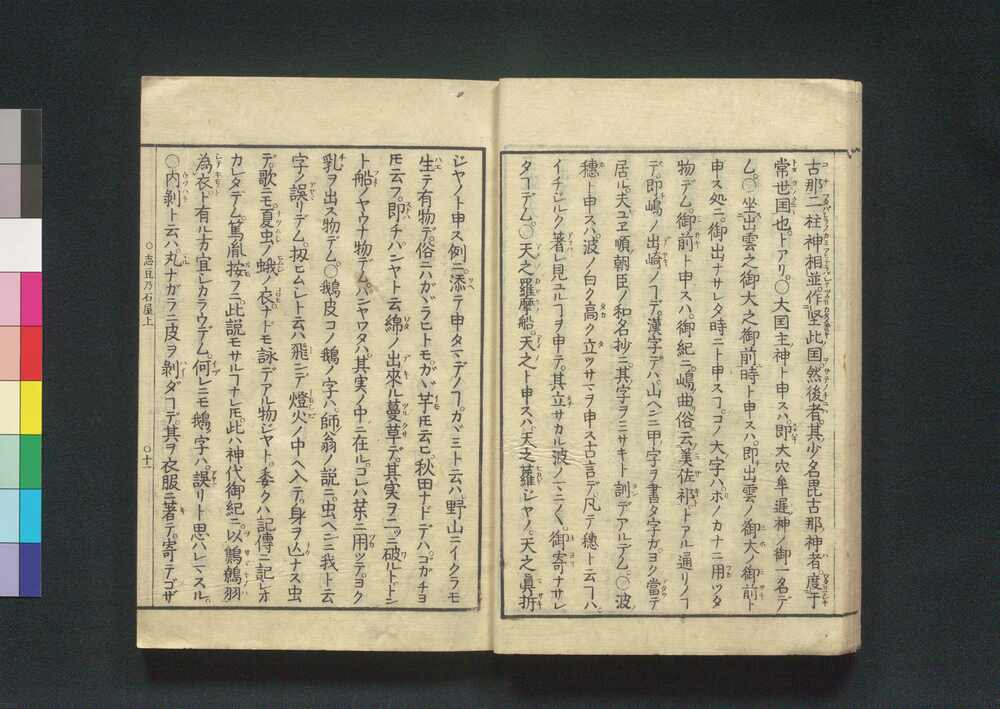 古那二柱神相並。作堅此国。然後者。其少名毘古那神者。度于
常世国也。トアリ。○大国主神ト申スハ。即大穴牟遅神ノ御一名デ
ム。○坐出雲之御大之御前時ト申スハ。即出雲ノ御大ノ御前ト
申ス処ニ。御出ナサレタ時ニト申スヿ。コノ大字ハ。ホノカナニ用ツタ
物デム。御前ト申スハ。御紀ニ。嶋曲俗云美佐祁。トアル通リノヿ
デ。即嶋ノ出崎ノヿデ。漢字デハ。山ヘンニ甲字ヲ書タ字ガヨク當テ
居ル。夫ユヱ順朝臣ノ和名抄ニ。其字ヲミサキト訓デアルデム。○波
穂ト申スハ。波ノ白ク高ク立ツサマヲ申ス古言デ。凡テ穂ト云フハ。
イチジルク著レ見ユルヿヲ申テ。其立サカル波ノマニ〱。御寄ナサレ
タヿデム。○天之羅摩船。天之ト申スハ。天之蘿ジヤノ。天之眞折
ジヤノト申ス例ニ添テ申タマデノヿ。カヾミト云ハ。野山ニイクラモ
生テ有物デ。俗ニハガヾラヒトモ。ガヾ芋モ云ヒ。秋田ナドデハ。ゴガチヨ
モ云フ。即チハンヤト云綿ノ出來ル蔓草デ。其実ヲ二ッニ破ルト。ドント
船ノヤウナ物デム。パンヤワタハ。其実ノ中ニ在ル。コレハ菜ニ用ツテ。ヨク
乳ヲ出ス物デム。○鵝皮コノ鵝ノ字ハ。師翁ノ説ニ。虫ヘンニ我ト云
字ノ誤リデム。扨ヒムシト云ハ。飛ンデ燈火ノ中ヘ入テ。身ヲ亾ナス虫
デ。歌ニモ。夏虫ノ蛾ノ衣ナドモ詠デアル物ジヤト。委クハ記傳ニ記シオ
カレタデム。篤胤按フニ。此説モサルヿナレモ。此ハ神代御紀ニ。以鷦鷯羽
為衣ト有ル方宜シカラウデム。何レニモ鵝ノ字ハ。誤リト思ハレマスル。
○内剥ト云ハ。丸ナガラニ皮ヲ剥ダヿデ。其ヲ衣服ニ著テ。寄テゴザ
○志豆乃石屋上
○十一